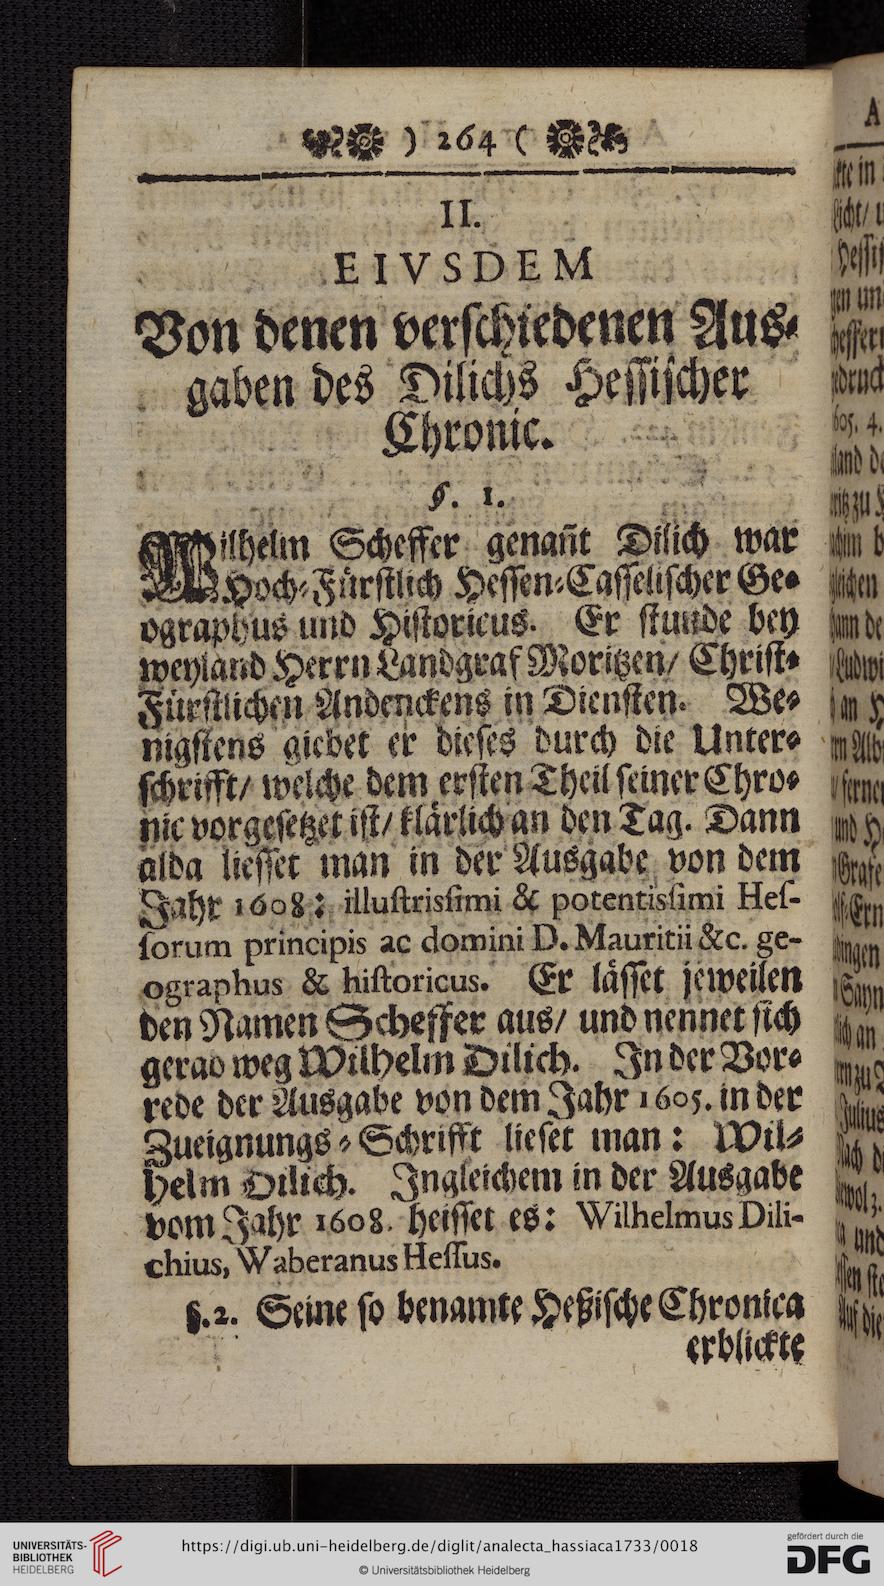 ) 264 (
II.
EIVSDEM
Von denen verſchiedenen Aus⸗
gaben des Dilichs Heſſiſcher
Chronic.
§. 1.
Wilhelm Scheffer genañt Dilich war
Hoch⸗Fürſtlich Heſſen⸗Caſſeliſcher Ge⸗
ographus und Hiſtoricus. Er ſtunde bey
weyland Herrn Landgraf Moritzen/ Chriſt⸗
Fürſtlichen Andenckens in Dienſten. We⸗
nigſtens giebet er dieſes durch die Unter⸗
ſchrifft/ welche dem erſten Theil ſeiner Chro⸗
nic vorgeſetzet iſt/ klärlich an den Tag. Dann
alda lieſſet man in der Ausgabe von dem
Jahr 1608: illuſtrisſimi & potentisſimi Heſ-
ſorum principis ac domini D. Mauritii &c. ge-
ographus & hiſtoricus. Er läſſet jeweilen
den Namen Scheffer aus/ und nennet ſich
gerad weg Wilhelm Dilich. In der Vor⸗
rede der Ausgabe von dem Jahr 1605. in der
Zueignungs⸗Schrifft lieſet man: Wil⸗
helm Dilich. Ingleichem in der Ausgabe
vom Jahr 1608. heiſſet es: Wilhelmus Dili-
chius, Waberanus Heſſus.
§. 2. Seine ſo benamte Heßiſche Chronica
erblickte
UNIVERSITÄTS-
BIBLIOTHEK
HEIDELBERG
https://digi.ub.uni-heidelberg.de/diglit/analecta_hassiaca1733/0018
© Universitätsbibliothek Heidelberg
gefördert durch die
DFG